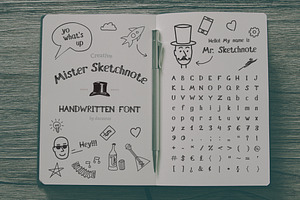 yo
what's
up?
Creative
Mister Sketchnote
HANDWRITTEN FONT
Hey!!!
$
Hello! My name is
Mr. Sketchnote
A B C D E F G H I J
K L M N O P Q R S T
U V W X Y Z a b c d
e f g h i j k l m n
o p q r s t u v w x
y z 1 2 3 4 5 6 7 8